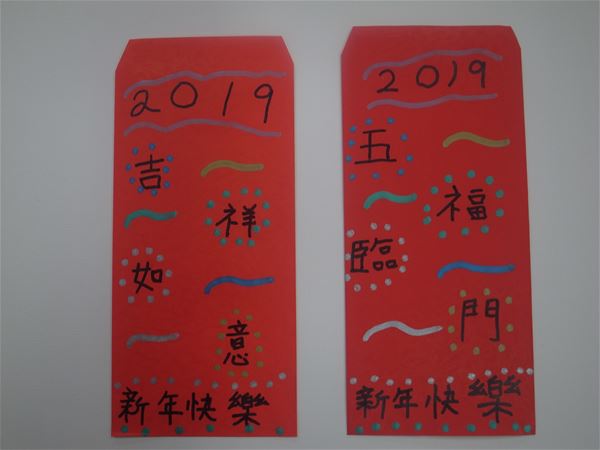 2019
吉
祥
如
意
新年快樂
2019
五
福
臨
門
新年快樂